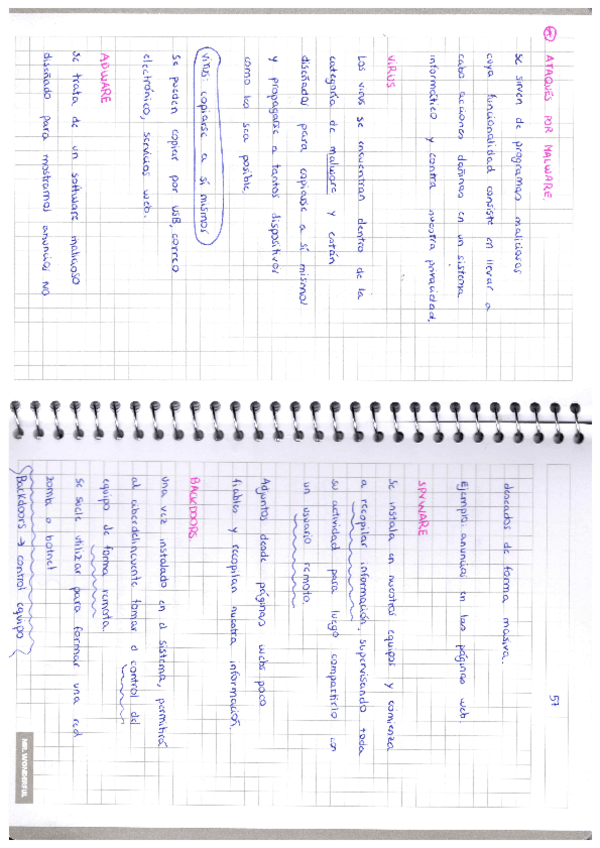 ④ ATAQUES POR MALWARE.
se sirven de programas maliciosos
cuya funcionalidad consiste en llevar a
cabo acciones dañinas en un sistema
informático y contra nuestra privacidad.
VIRUS
Los virus se encuentran dentro de la
categoría de malware y están
diseñados para copiarse a sí mismos
y propagarse a tantos dispositivos
como les sea posible.
virus: copiarse a sí mismos
Se pueden copiar por USB, correo
electrónico, servicios web.
ADWARE
se trata de un software malicioso
diseñado para mostrarnos anuncios no
57
deseados de forma masiva.
Ejemplo: anuncios en las páginas web.
SPYWARE
Se instala en nuestros equipos y comienza
a recopilar información, supervisando toda
su actividad para luego compartirlo con
un usuario remoto.
Adjuntos desde páginas webs poco
fiables y recopilan nuestra información.
BACKDOORS
Una vez instalado en el sistema, permitirá
al ciberdelincuente tomar el control del
equipo de forma remota.
se suele utilizar para formar una red
zombi o botnet
Backdoors → control equipo
MR. WONDERFUL